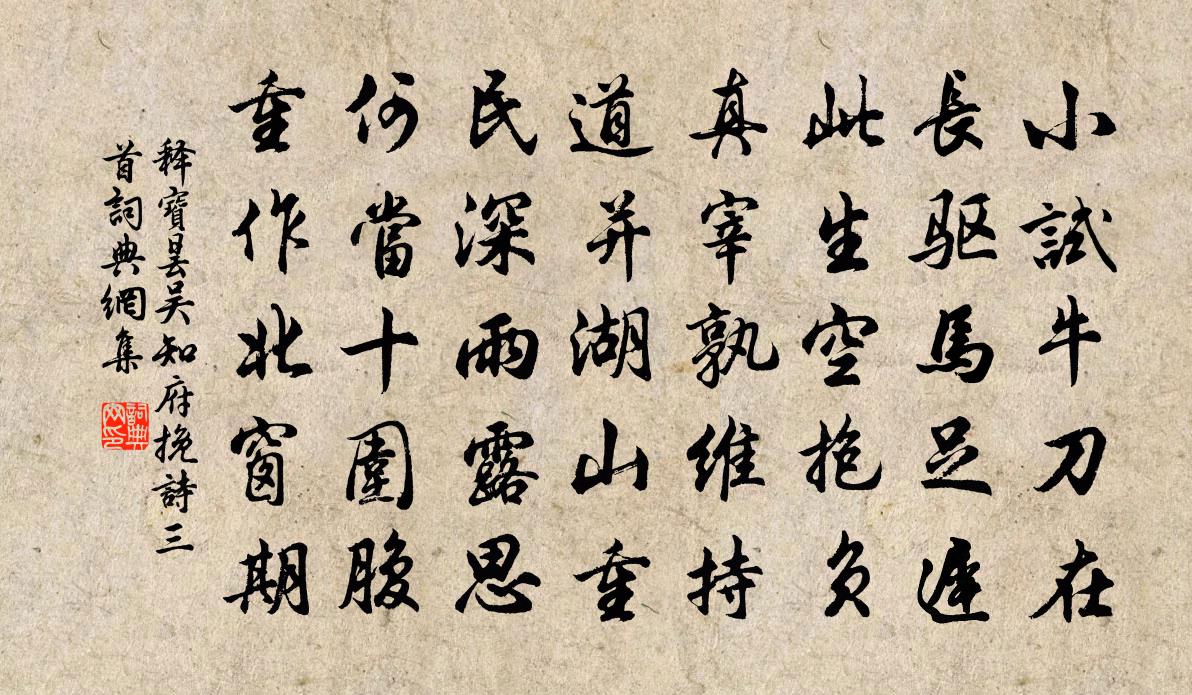 小試牛刀在
長驱馬足遲
此生空抱負
真宰孰維持
道并湖山重
民深雨露思
何當十圍腹
重作北窗期
釋寶曇吳知府挽詩三
首詞典網集
詞典網印